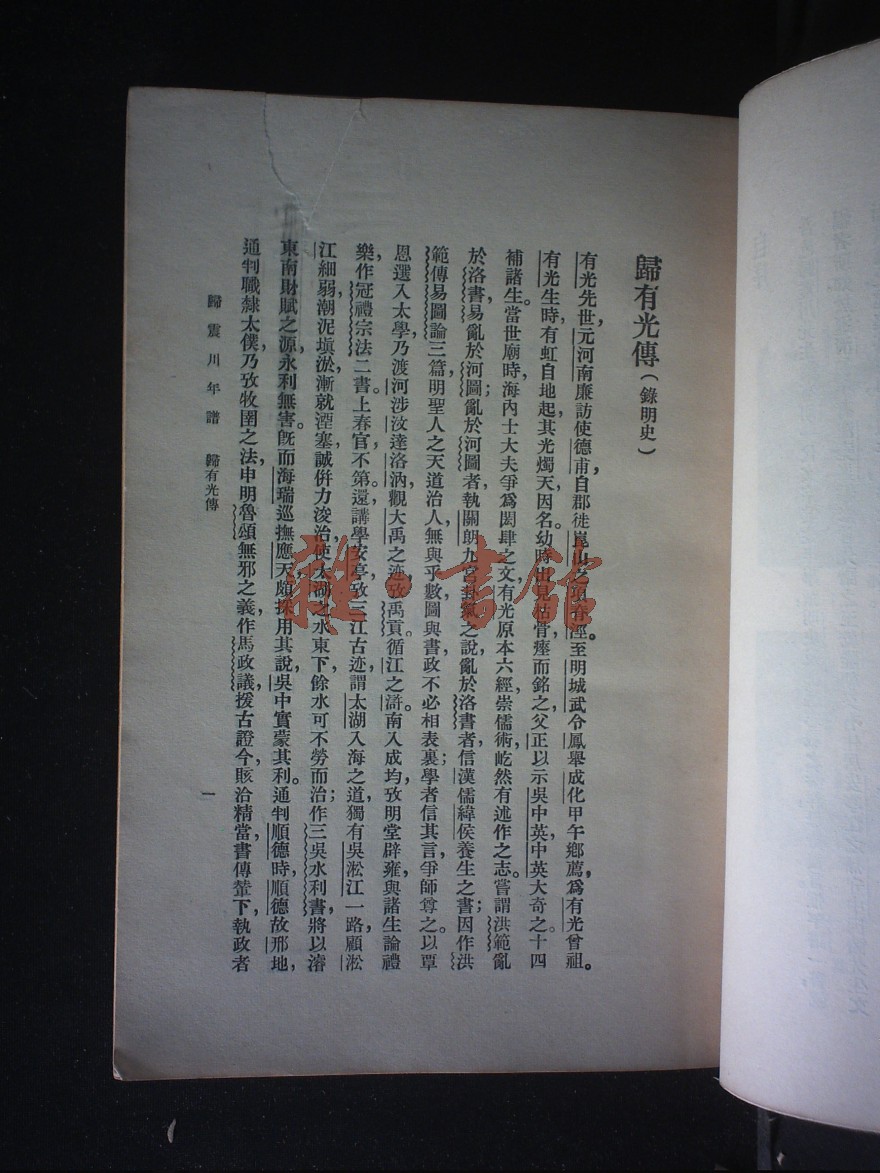 歸有光傳(錄明史)
有光先世元河南廉訪使德甫,自郡徙崑山之項脊涇。至明城武令鳳舉成化甲午鄉薦,爲有光曾祖。
有光生時,有虹自地起,其光燭天,因名。幼時出見枯骨,瘞而銘之。父正以示吳中英,中英大奇之。十四
補諸生。當世廟時,海內士大夫爭爲閎肆之文,有光原本六經,崇儒術,屹然有述作之志。嘗謂洪範亂
於洛書,易亂於河圖;亂於河圖者,執關朗九宮卦氣之說,亂於洛書者,信漢儒緯侯養生之書;因作洪
範傳易圖論三篇,明聖人之天道治人,無與乎數圖與書政不必相表裏;學者信其言,爭師尊之。以覃
恩選入太學,乃渡河涉汶達洛汭,觀大禹之迹,攷禹貢。循江之滸。南入成均,攷明堂辟雍,與諸生論禮
樂,作冠禮宗法二書。上春官不第。還講學安亭,攷三江古迹,謂太湖入海之道,獨有吳淞江一路,顧淞
江細弱,潮泥塡淤,漸就湮塞,誠併力浚治,使太湖之水東下,餘水可不勞而治;作三吳水利書,將以濬
東南財賦之源,永利無害。旣而海瑞巡撫應天,頗採用其說,吳中實蒙其利。通判順德時,順德故邢地,
通判職隸太僕,乃攷牧圉之法,申明魯頌無邪之義,作馬政議,援古證今,賅洽精當,書傳輦下,執政者
歸震川年譜 歸有光傳
一
雜·書館